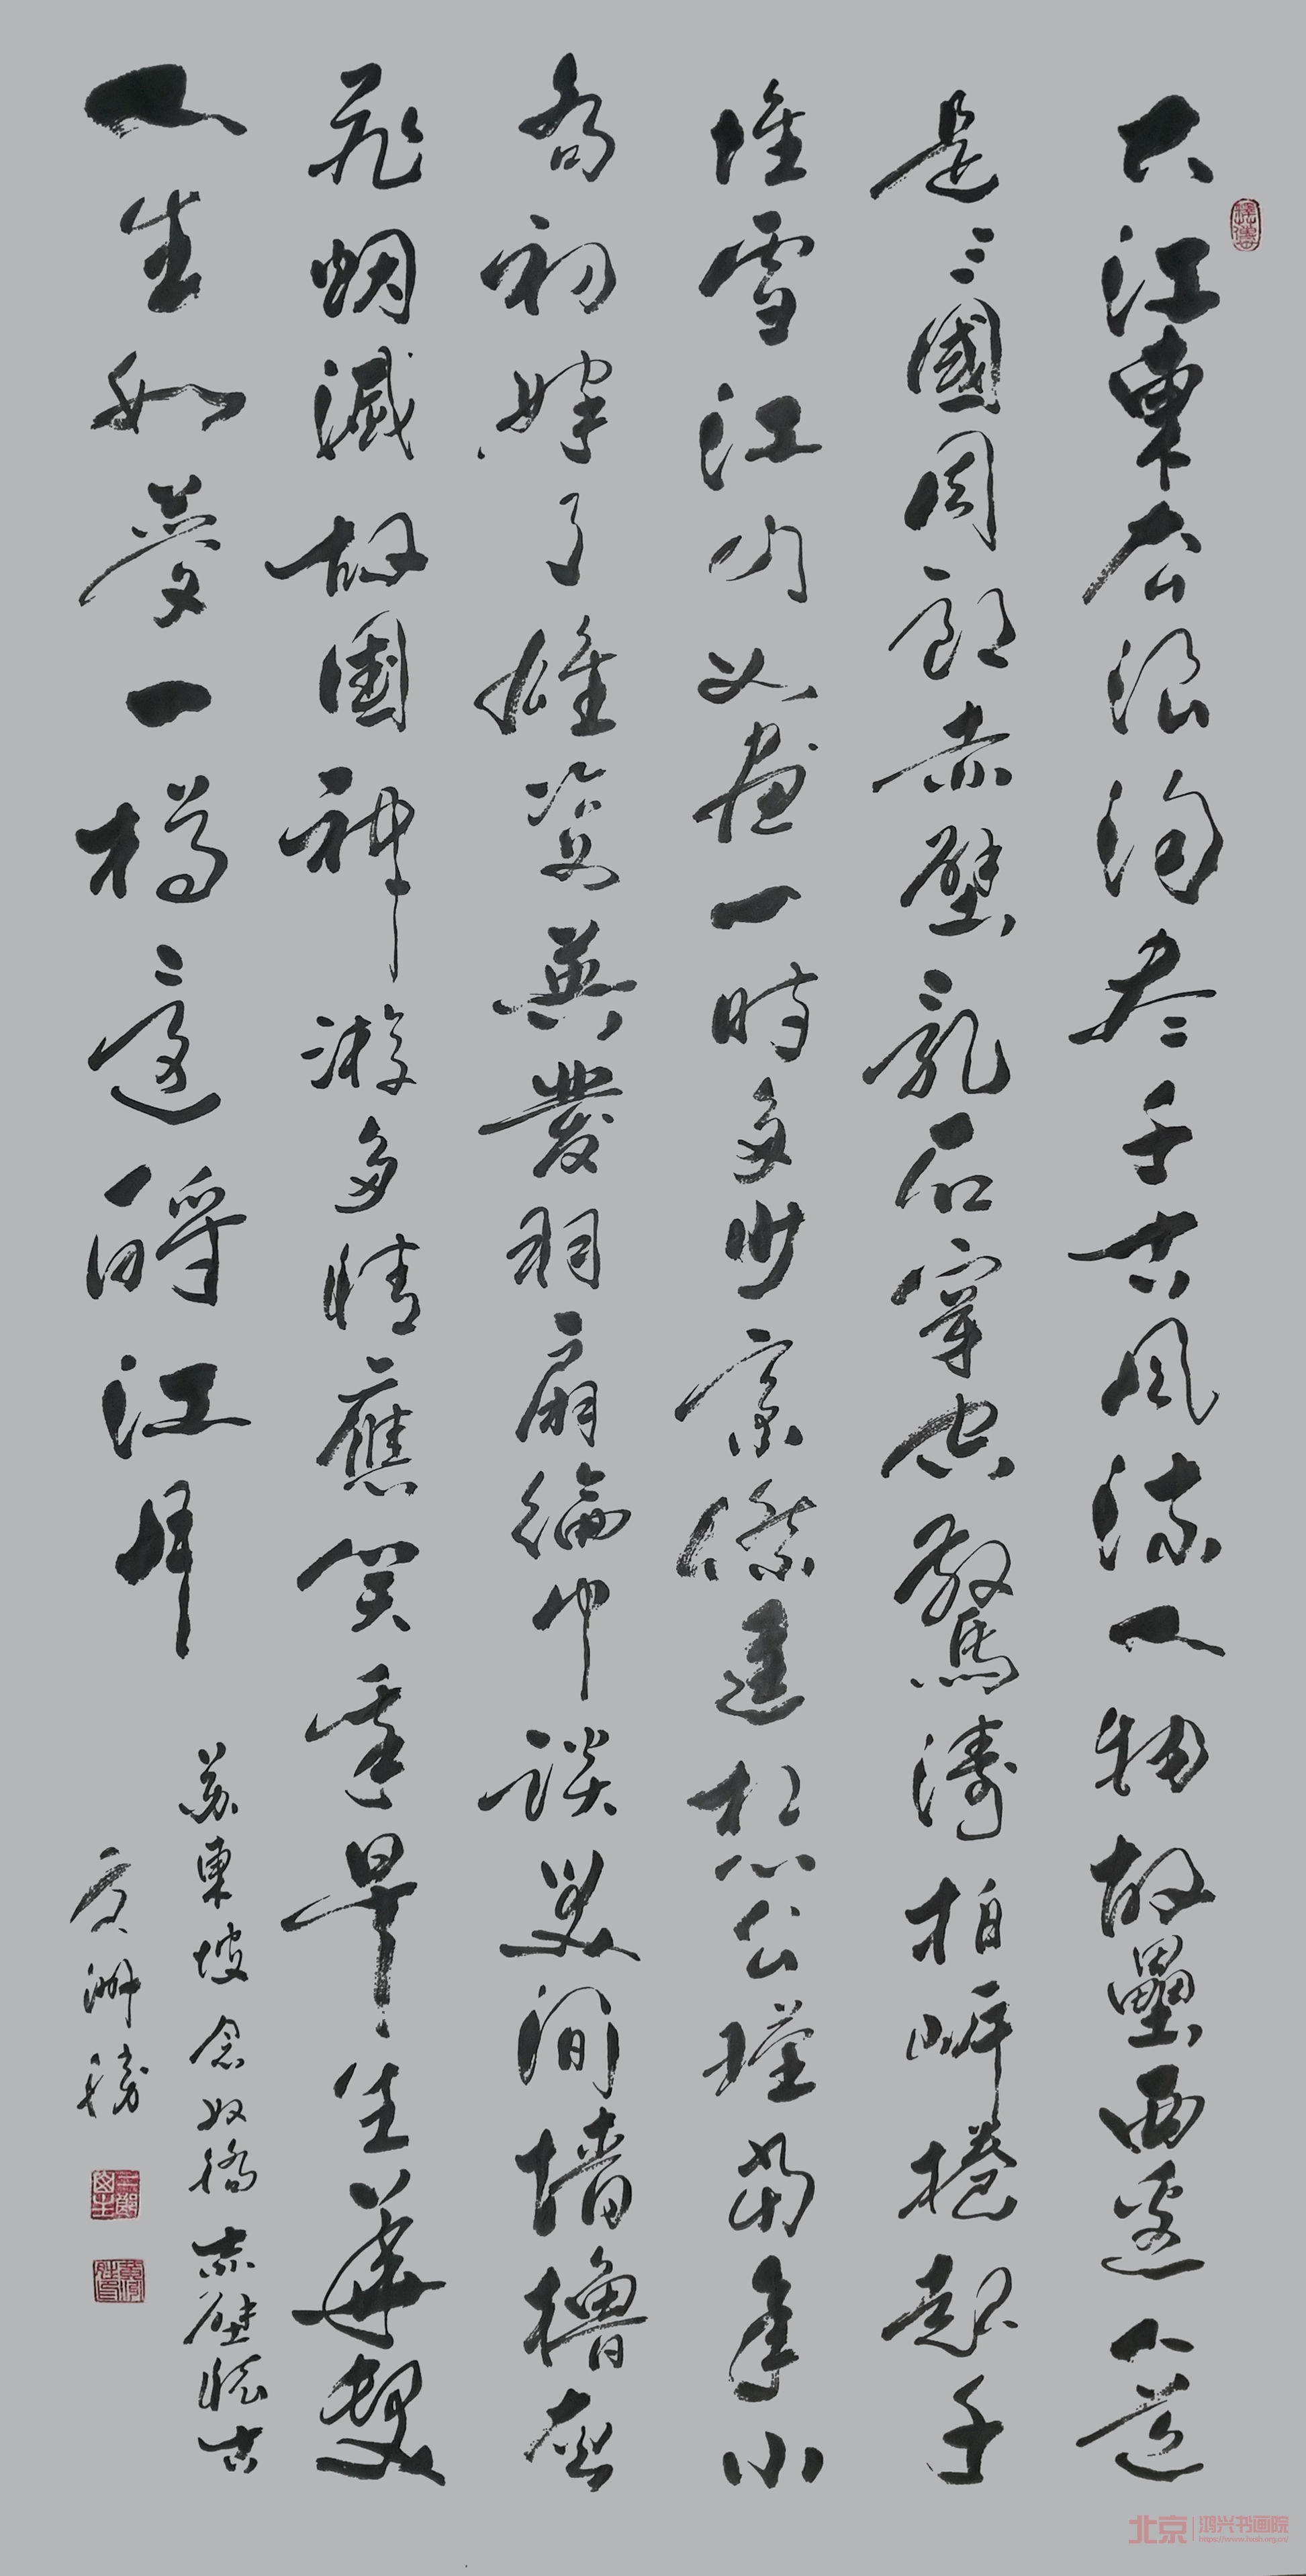 大江東去浪淘尽千古風流人物故壘西邊人道
是三國周郎赤壁亂石穿空驚濤拍岸捲起千
堆雪江山如畫一時多少豪傑遥想公瑾當年小
喬初嫁了雄姿英發羽扇綸巾談笑間墻櫓灰
飛烟滅故國神游多情應笑我早生華髮
人生如夢一樽還酹江月
蘇東坡念奴嬌赤壁懷古
北京 鸿兴书画院
https://www.hxsh.org.cn/